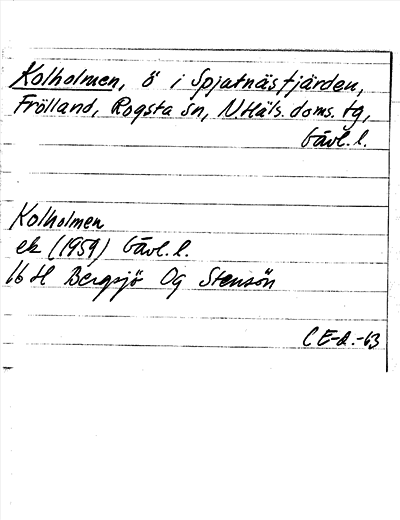 Kolholmen, ö i Spjutnäsfjärden,
Frölland, Rogsta sn, N.Häls. doms. tg,
Gävl. l.
Kolholmen
ek (1959) Gävl. l.
16 H Bergsjö Og Stensön
C E-d.-63